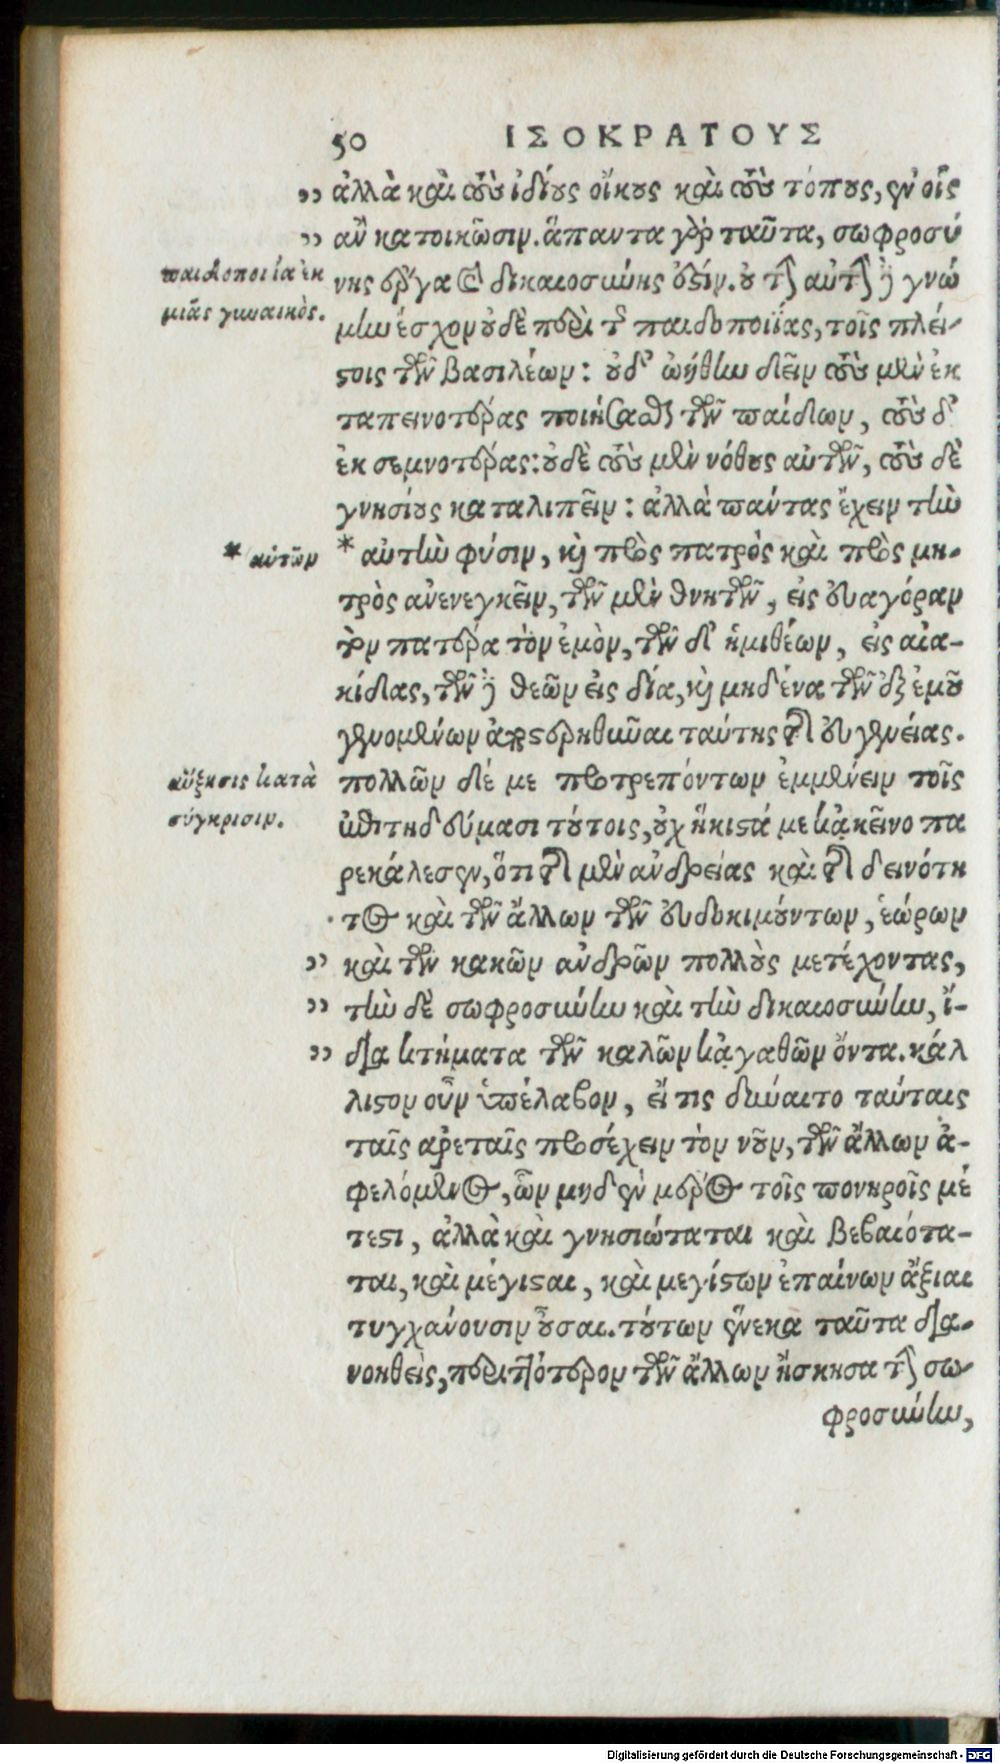 50 ΙΣΟΚΡΑΤΟΥΣ
„ ἀλλὰ καὶ τοὺς ἰδίους οἴκους καὶ τοὺς τόπους, ἐν οἷς
„ ἂν κατοικῶσιν. ἅπαντα γὰρ ταῦτα, σωφροσύ
παιδοποιία ἐκ
μιᾶς γυναικός.
νης ἔργα καὶ δικαιοσύνης ἐστίν. οὐ τὴν αὐτὴν δὲ γνώ
μην ἔσχον οὐδὲ περὶ τῆς παιδοποιίας, τοῖς πλεί-
στοις τῶν βασιλέων: οὐδ' ᾠήθην δεῖν τοὺς μὲν ἐκ
ταπεινοτέρας ποιήσασθαι τῶν παίδων, τοὺς δ'
ἐκ σεμνοτέρας: οὐδὲ τοὺς μὲν νόθους αὐτῶν, τοὺς δὲ
γνησίους καταλιπεῖν: ἀλλὰ πάντας ἔχειν τὴν
* αὐτῶν
* αὐτὴν φύσιν, καὶ πρὸς πατρὸς καὶ πρὸς μη-
τρὸς ἀνενεγκεῖν, τῶν μὲν θνητῶν, εἰς εὐαγόραν
τὸν πατέρα τὸν ἐμὸν, τῶν δ' ἡμιθέων, εἰς αἰα-
κίδας, τῶν δὲ θεῶν εἰς δία, καὶ μηδένα τῶν ἐξ ἐμοῦ
γενομένων ἀποστερηθῆναι ταύτης τῆς εὐγενείας.
αὔξησις κατὰ
σύγκρισιν.
πολλῶν δέ με προτρεπόντων ἐμμένειν τοῖς
ἐπιτηδεύμασι τούτοις, οὐχ ἥκιστά με κἀκεῖνο πα
ρεκάλεσεν, ὅτι τῆς μὲν ἀνδρείας καὶ τῆς δεινότη
τος καὶ τῶν ἄλλων τῶν εὐδοκιμούντων, ἑώρων
„ καὶ τῶν κακῶν ἀνδρῶν πολλοὺς μετέχοντας,
„ τὴν δὲ σωφροσύνην καὶ τὴν δικαιοσύνην, ἴ-
„ δια κτήματα τῶν καλῶν κἀγαθῶν ὄντα. κάλ
λιστον οὖν ὑπέλαβον, εἴ τις δύναιτο ταύταις
ταῖς ἀρεταῖς προσέχειν τὸν νοῦν, τῶν ἄλλων ἀ-
φελόμενος, ὧν μηδὲν μέρος τοῖς πονηροῖς μέ
τεστι, ἀλλὰ καὶ γνησιώταται καὶ βεβαιότα-
ται, καὶ μέγισται, καὶ μεγίστων ἐπαίνων ἄξιαι
τυγχάνουσιν οὖσαι. τούτων ἕνεκα ταῦτα δια-
νοηθεὶς, περιττότερον τῶν ἄλλων ἤσκησα τὴν σω-
φροσύνην,
Digitalisierung gefördert durch die Deutsche Forschungsgemeinschaft - DFG